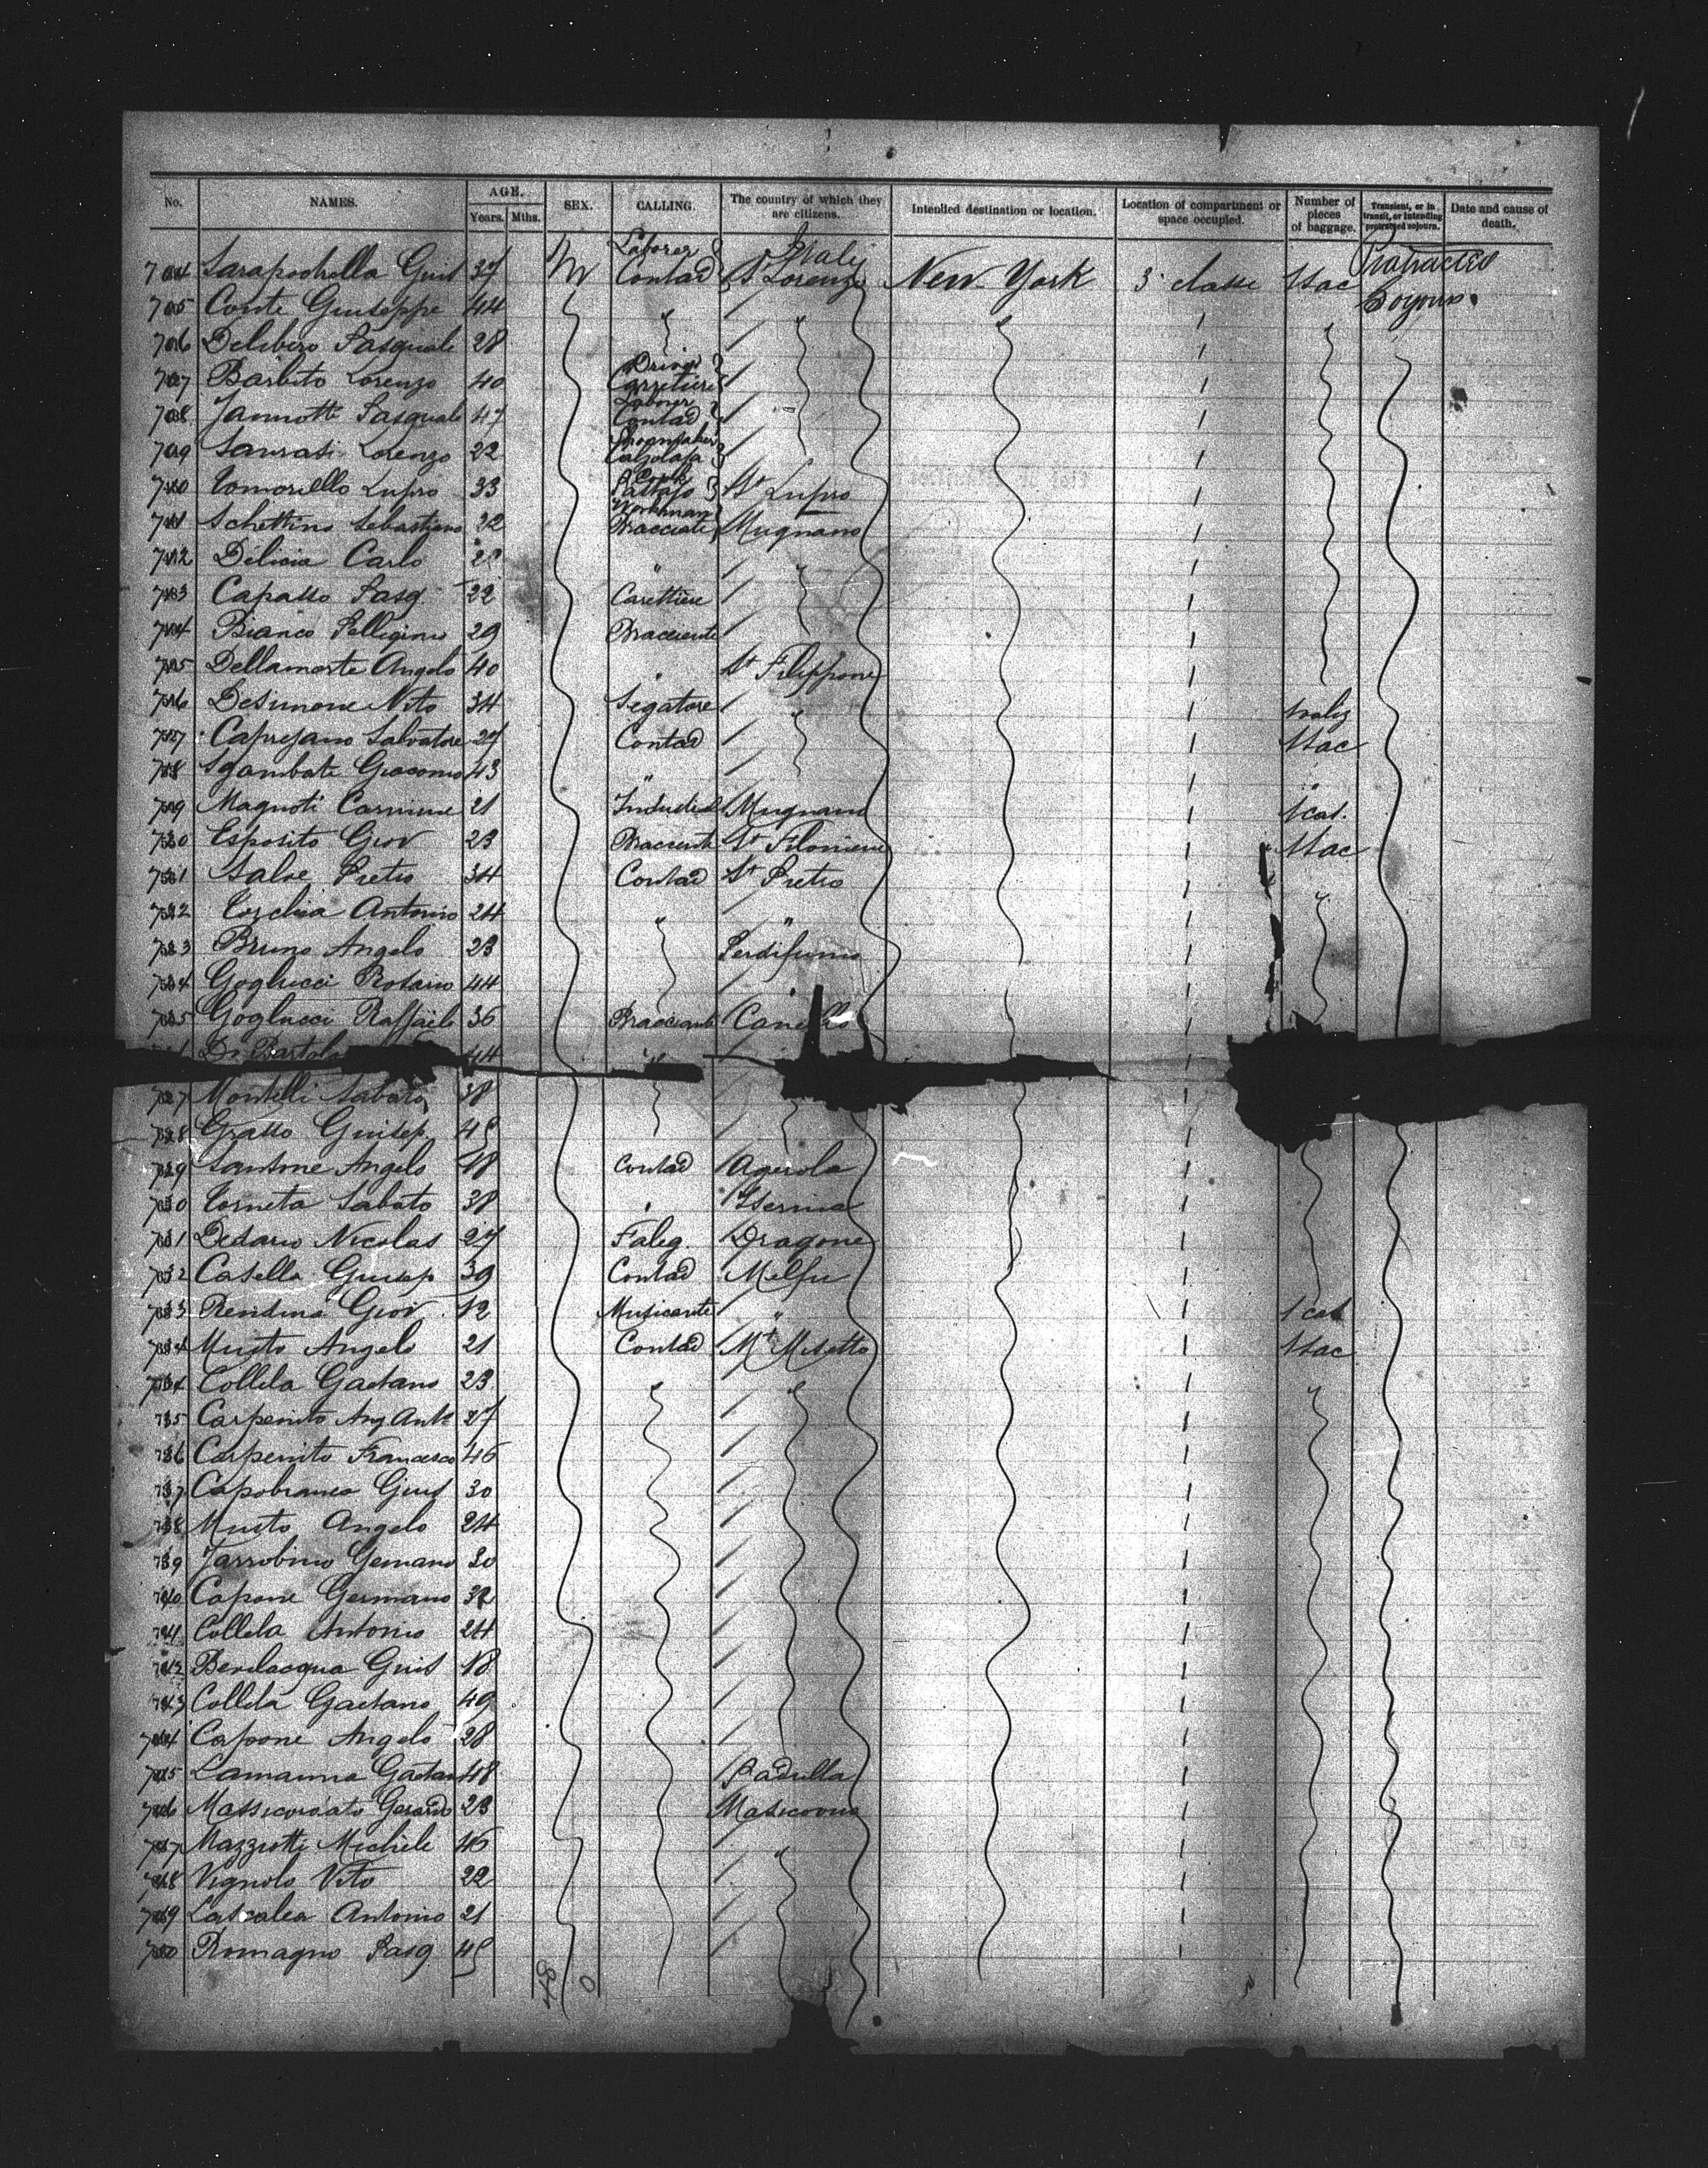 No. NAMES. AGE. Years. Mths. SEX. CALLING. The country of which they are citizens. Intended destination or location. Location of compartment or space occupied. Number of pieces of baggage. Transient, or in transit, or intending protracted sojourn. Date and cause of death.
Laborer Italy Protracted
704 Sarapochella Gius 37 M Contad St Lorenzo New-York 3 classe 1 sac
705 Conte Giuseppe 44
706 Delibero Pasquale 28
Driver
707 Barbito Lorenzo 40 Carrettiere
Laborer
708 Jannotti Pasquale 47 Contad
709 Saurasi Lorenzo 22
Cook
710 Tomoriello Lupro 33 St Lupro
Workman
711 Schettino Sebastiano 22 Bracciate Mugnano
712 Delicia Carlo "
713 Capasso Pasq. 22 Carettiere
714 Bianco Pelligrino 29 Bracciente
715 Dellamorte Angelo 40 " St Filippone
716 Desimone Vito 34 Segatore 1 valig
717 Capresano Salvatore 27 Contad 1 sac
718 Sgambate Giacomo 43 "
719 Magnoti Carmine 21 Mugnano 1 cas.
720 Esposito Giov 23 Bracciente St Filomene 1 sac
721 Salve Pietro 34 Contad St Pietro
722 Torchia Antonio 24 " "
723 Bruno Angelo 23 Perdifumo
724 Goglucci Rosario 44
725 Goglucci Raffaele 36 Bracciante
Di Bartolo 44
727 Montelli Sabato 38
728 Grasso Giusep 45
729 Santone Angelo 18 Contad Agerola
730 Torneta Sabato 38 " Isernia
731 Dedario Nicolas 27 Faleg. Dragone
732 Casella Giusep 39 Contad Melfu
733 Rendina Giov. 12 Musicante " 1 cas
734 Musto Angelo 21 Contad Mt Misetto 1 sac
734 Collela Gaetano 23
735 Carpenito Ang Ant 27
736 Carpenito Francesco 46
737 Capobranco Gius 30
738 Musto Angelo 24
739 Jarrobino Gemano 30
740 Capone Germano 32
741 Collela Antonio 24
742 Bevilacqua Gius 18
743 Collela Gaetano 49
744 Capone Angelo 28
745 Lamanna Gaetan 48 Padulla
746 Massicovato Gerardo 23 Masicovno
747 Mazziotti Michele 46 "
748 Vignolo Vito 22
749 Lascalea Antonio 21
750 Romagno Pasq 45
48 0